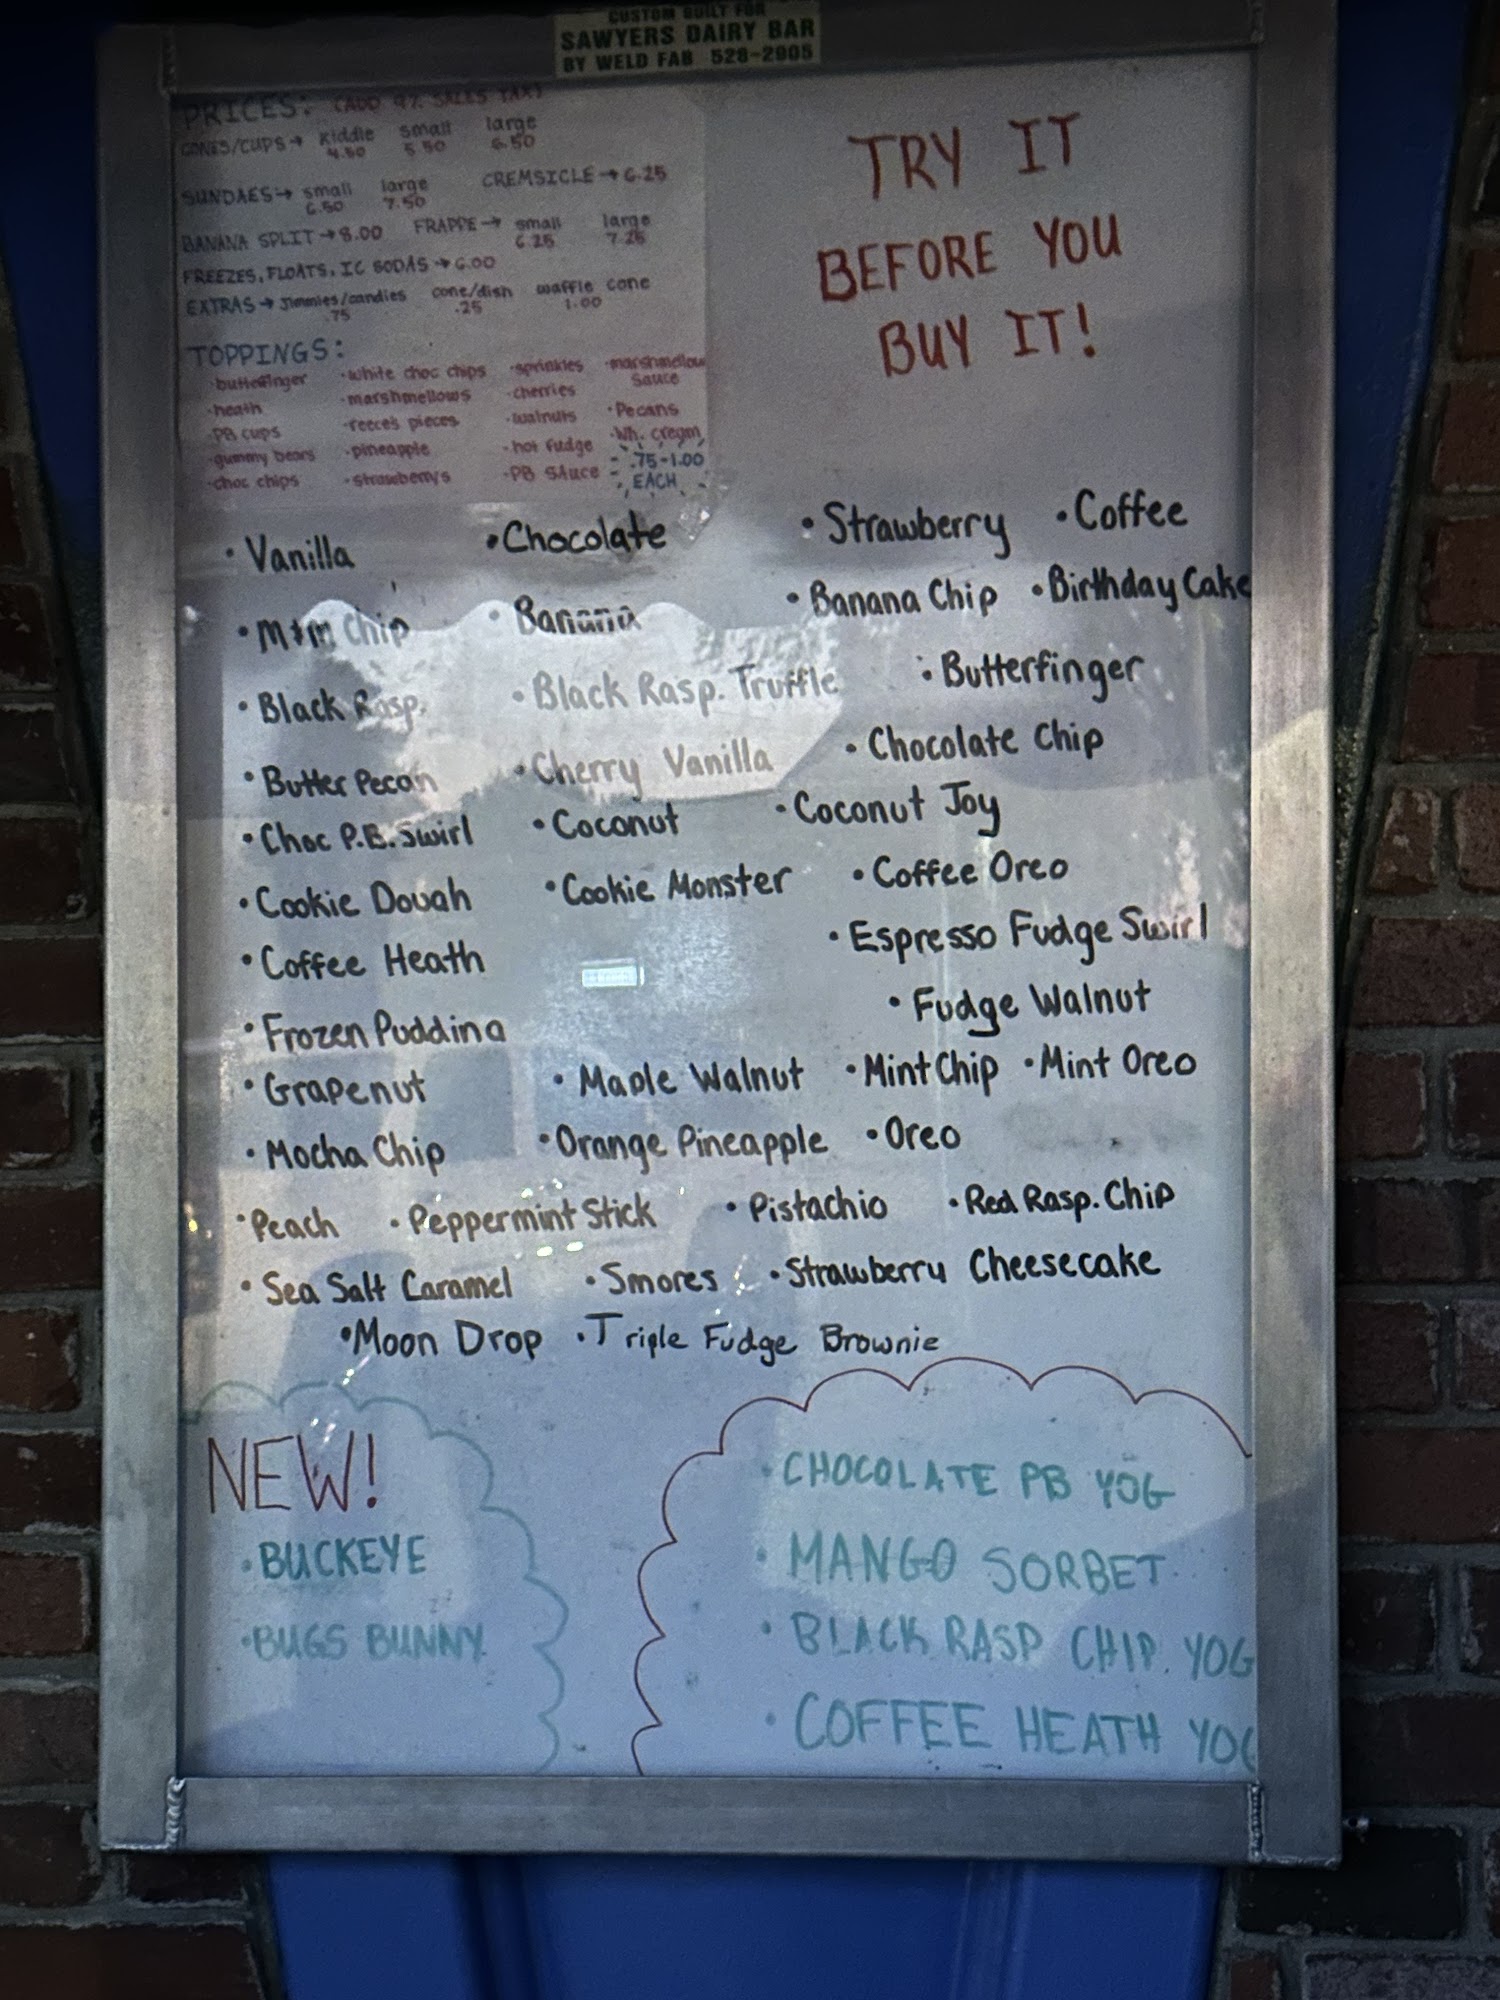 CUSTOM BUILT FOR
SAWYERS DAIRY BAR
BY WELD FAB 528-2905
PRICES: (ADD 9% SALES TAX)
CONES/CUPS → kiddie small large
4.50 5.50 6.50
SUNDAES → small large CREMSICLE → 6.25
6.50 7.50
BANANA SPLIT → 8.00 FRAPPE → small large
6.25 7.25
FREEZES, FLOATS, IC SODAS → 6.00
EXTRAS → Jimmies/candies cone/dish waffle cone
.75 .25 1.00
TOPPINGS:
• butterfinger • white choc chips • sprinkles • marshmellow sauce
• heath • marshmellows • cherries
• PB cups • reece's pieces • walnuts • Pecans
• gummy bears • pineapple • hot fudge • Wh. cream
• choc chips • strawberrys • PB Sauce .75-1.00
EACH
TRY IT
BEFORE YOU
BUY IT!
• Vanilla • Chocolate • Strawberry • Coffee
• M+m Chip • Banana • Banana Chip • Birthday Cake
• Black Rasp. • Black Rasp. Truffle • Butterfinger
• Butter Pecan • Cherry Vanilla • Chocolate Chip
• Choc P.B. Swirl • Coconut • Coconut Joy
• Cookie Dough • Cookie Monster • Coffee Oreo
• Coffee Heath • Espresso Fudge Swirl
• Frozen Pudding • Fudge Walnut
• Grapenut • Maple Walnut • Mint Chip • Mint Oreo
• Mocha Chip • Orange Pineapple • Oreo
• Peach • Peppermint Stick • Pistachio • Red Rasp. Chip
• Sea Salt Caramel • Smores • Strawberry Cheesecake
• Moon Drop • Triple Fudge Brownie
NEW!
• BUCKEYE
• BUGS BUNNY
• CHOCOLATE PB YOG
• MANGO SORBET
• BLACK RASP CHIP YOG
• COFFEE HEATH YOG